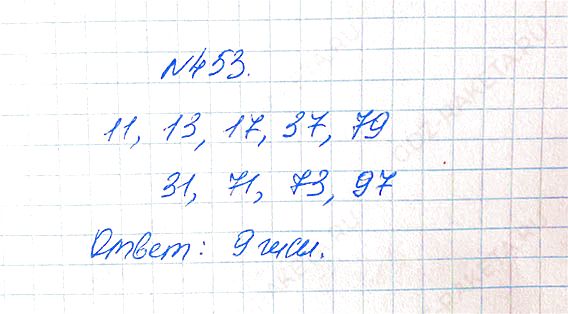 №453.
11, 13, 17, 37, 79
31, 71, 73, 97
Ответ: 9 чисел.